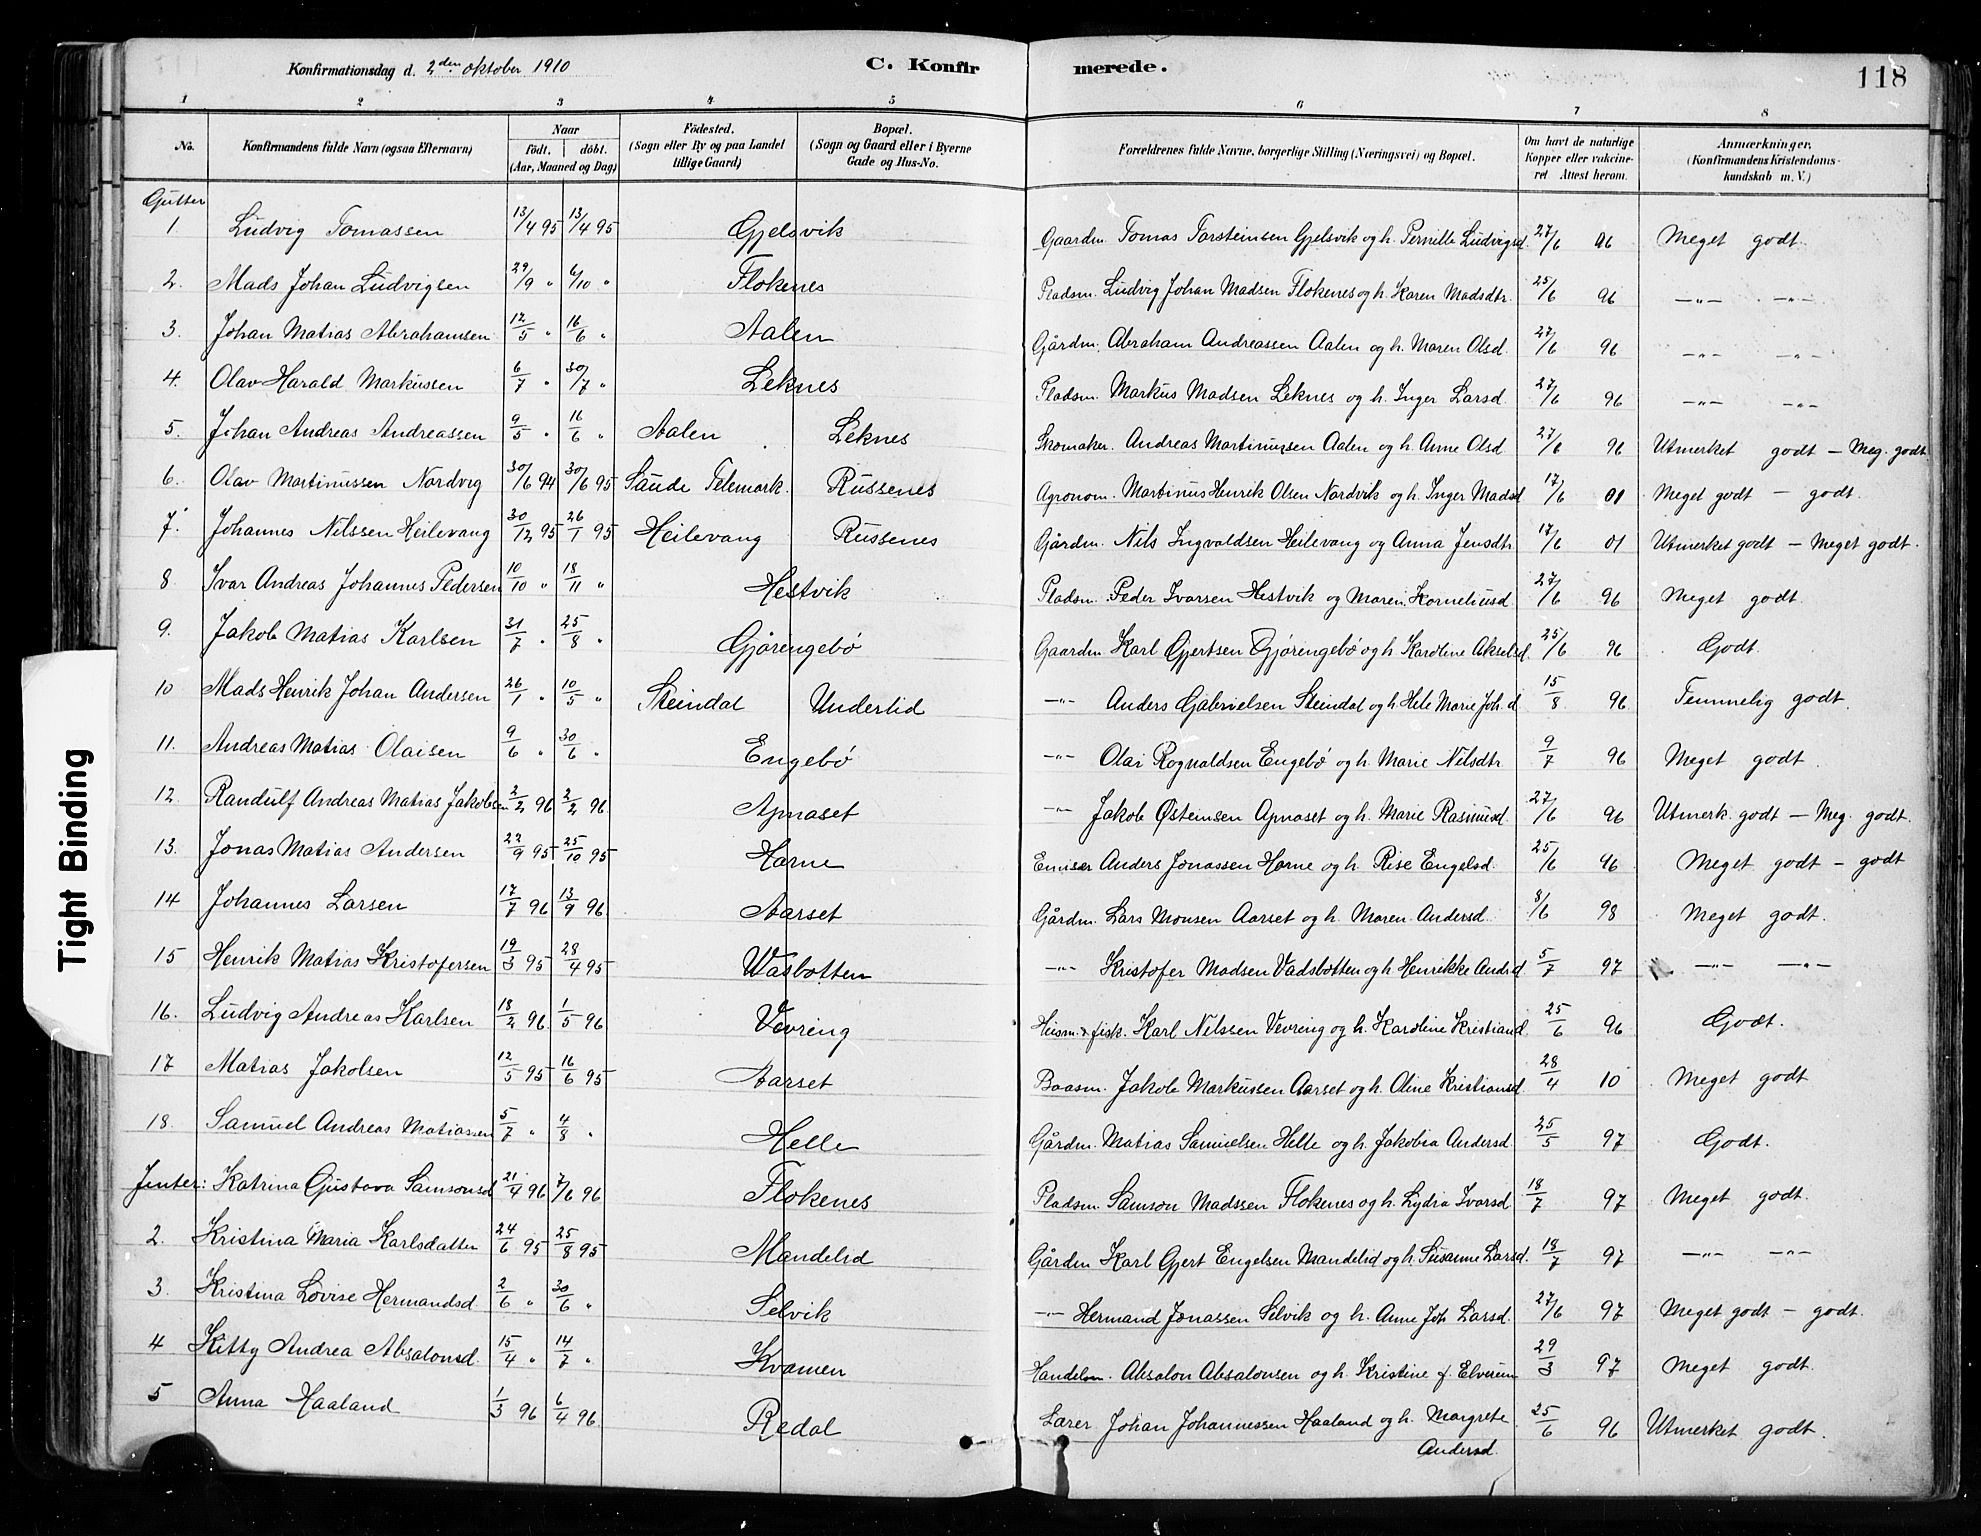 Konfirmationsdag d. 2den oktober 1910 C. Konfirmerede. 118
1 2 3 4 5 6 7 8
No. Konfirmandens fulde Navn (ogsaa Efternavn) Naar født. døbt. (Aar, Maaned og Dag) Fødested. (Sogn eller By og paa Landet tillige Gaard) Bopæl. (Sogn og Gaard eller i Byerne Gade og Hus-No. Forældrenes fulde Navne, borgerlige Stilling (Næringsvei) og Bopæl. Om havt de naturlige Kopper eller vakcineret Attest herom. Anmærkninger. (Konfirmandens Kristendomskundskab m. V.)
Gutter
1 Ludvig Tomassen 13/4 95 13/4 95 Gjelsvik Gaardm. Tomas Torsteinsen Gjelsvik og h. Pernille Ludvigsd. 27/6 96 Meget godt.
2. Mads Johan Ludvigsen 29/9 " 6/10 " Flokenes Pladsm. Ludvig Johan Madsen Flokenes og h. Karen Madsdtr. 25/6 96 —"— —"—
3. Johan Matias Abrahamsen 12/5 " 16/6 " Aalen Gårdm. Abraham Andreassen Aalen og h. Maren Olsd. 27/6 96 —"— —"—
4. Olav Harald Markussen 6/7 " 30/7 " Leknes Pladsm. Markus Madsen Leknes og h. Inger Larsd. 27/6 96 —"— —"—
5. Johan Andreas Andreassen 9/5 " 16/6 " Aalen Leknes Skomaker. Andreas Martinussen Aalen og h. Anne Olsd 27/6 96 Utmerket godt — Meg. godt
6. Olav Martinussen Nordvig 30/6 94 30/6 95 Saude Telemark. Russenes Agronom. Martinus Henrik Olsen Nordvik og h. Inger Madsd 17/6 01 Meget godt — godt.
7. Johannes Nilssen Heilevang 30/12 95 26/1 95 Heilevang Russenes Gårdm. Nils Ingvaldsen Heilevang og Anna Jensdtr. 17/6 01 Utmerket godt — Meget godt.
8. Ivar Andreas Johannes Pedersen 10/10 " 18/11 " Hestvik Pladsm. Peder Ivarsen Hestvik og Maren Korneliusd 27/6 96 Meget godt.
9. Jakob Matias Karlsen 31/7 " 25/8 " Gjørengebø Gaardm Karl Gjertsen Gjørengebø og h. Karoline Akselsd. 25/6 96 Godt.
10 Mads Henrik Johan Andersen 26/1 " 10/5 " Steindal Underlid —"— Anders Gabrielsen Steindal og h. Hele Marie Joh.d. 15/8 96 Temmelig godt.
11. Andreas Matias Olaisen 9/6 " 30/6 " Engebø —"— Olai Rognaldsen Engebø og h. Marie Nilsdtr 9/7 96 Meget godt.
12. Randulf Andreas Matias Jakobsen 2/2 96 2/2 96. Apnaset —"— Jakob Østeinsen Apnaset og h. Marie Rasmusd. 27/6 96 Utmerk. godt — Meg. godt.
13. Jonas Matias Andersen 27/9 95 25/10 95 Horne Emisær Anders Jonassen Horne og h. Rise Engelsd. 25/6 96 Meget godt — godt
14 Johannes Larsen 17/7 96 13/9 96. Aarset Gårdm. Lars Monsen Aarset og h. Maren Andersd. 8/6 98 Meget godt.
15 Henrik Matias Kristofersen 19/3 95 28/4 95 Vasbotten —"— Kristofer Madsen Vadsbotten og h Henrikke Andrd 5/7 97 —"— —"—
16. Ludvig Andreas Karlsen 18/2 96 1/5 96 Vevring Husm. & fisk. Karl Nilssen Vevring og h. Karoline Kristiand. 25/6 96 Godt.
17 Matias Jakobsen 12/5 95 16/6 95 Aarset Baasm. Jakob Markussen Aarset og h. Oline Kristiansd. 28/4 10 Meget godt
18. Samuel Andreas Matiassen 5/7 " 4/8 " Helle Gårdm. Matias Samuelsen Helle og h. Jakobia Andersd. 25/5 97 Godt.
Jenter: Katrina Gustava Samsonsd 21/4 96 7/6 96 Flokenes Pladsm. Samson Madssen Flokenes og h. Lydia Ivarsd. 18/7 97 Meget godt.
2. Kristina Maria Karlsdatter 24/6 95 25/8 95 Mandelid Gårdm Karl Gjert Engelsen Mandelid og h. Susanne Larsd. 18/7 97 —"— —"—
3. Kristina Lovise Hermandsd. 2/6 " 30/6 " Selvik —"— Hermand Jonassen Selvik og h. Anne Joh Larsd. 27/6 97 Meget godt — godt.
4 Kitty Andrea Absalonsd. 15/4 " 14/7 " Kvamen Handelsm. Absalon Absalonsen og h. Kristine f. Elverum 29/3 97 Meget godt.
5 Anna Haaland 1/3 96 6/4 96. Redal Lærer Johan Johannessen Haaland og h. Margrete 25/6 96 Utmerket godt.
Andersd.
Tight Binding